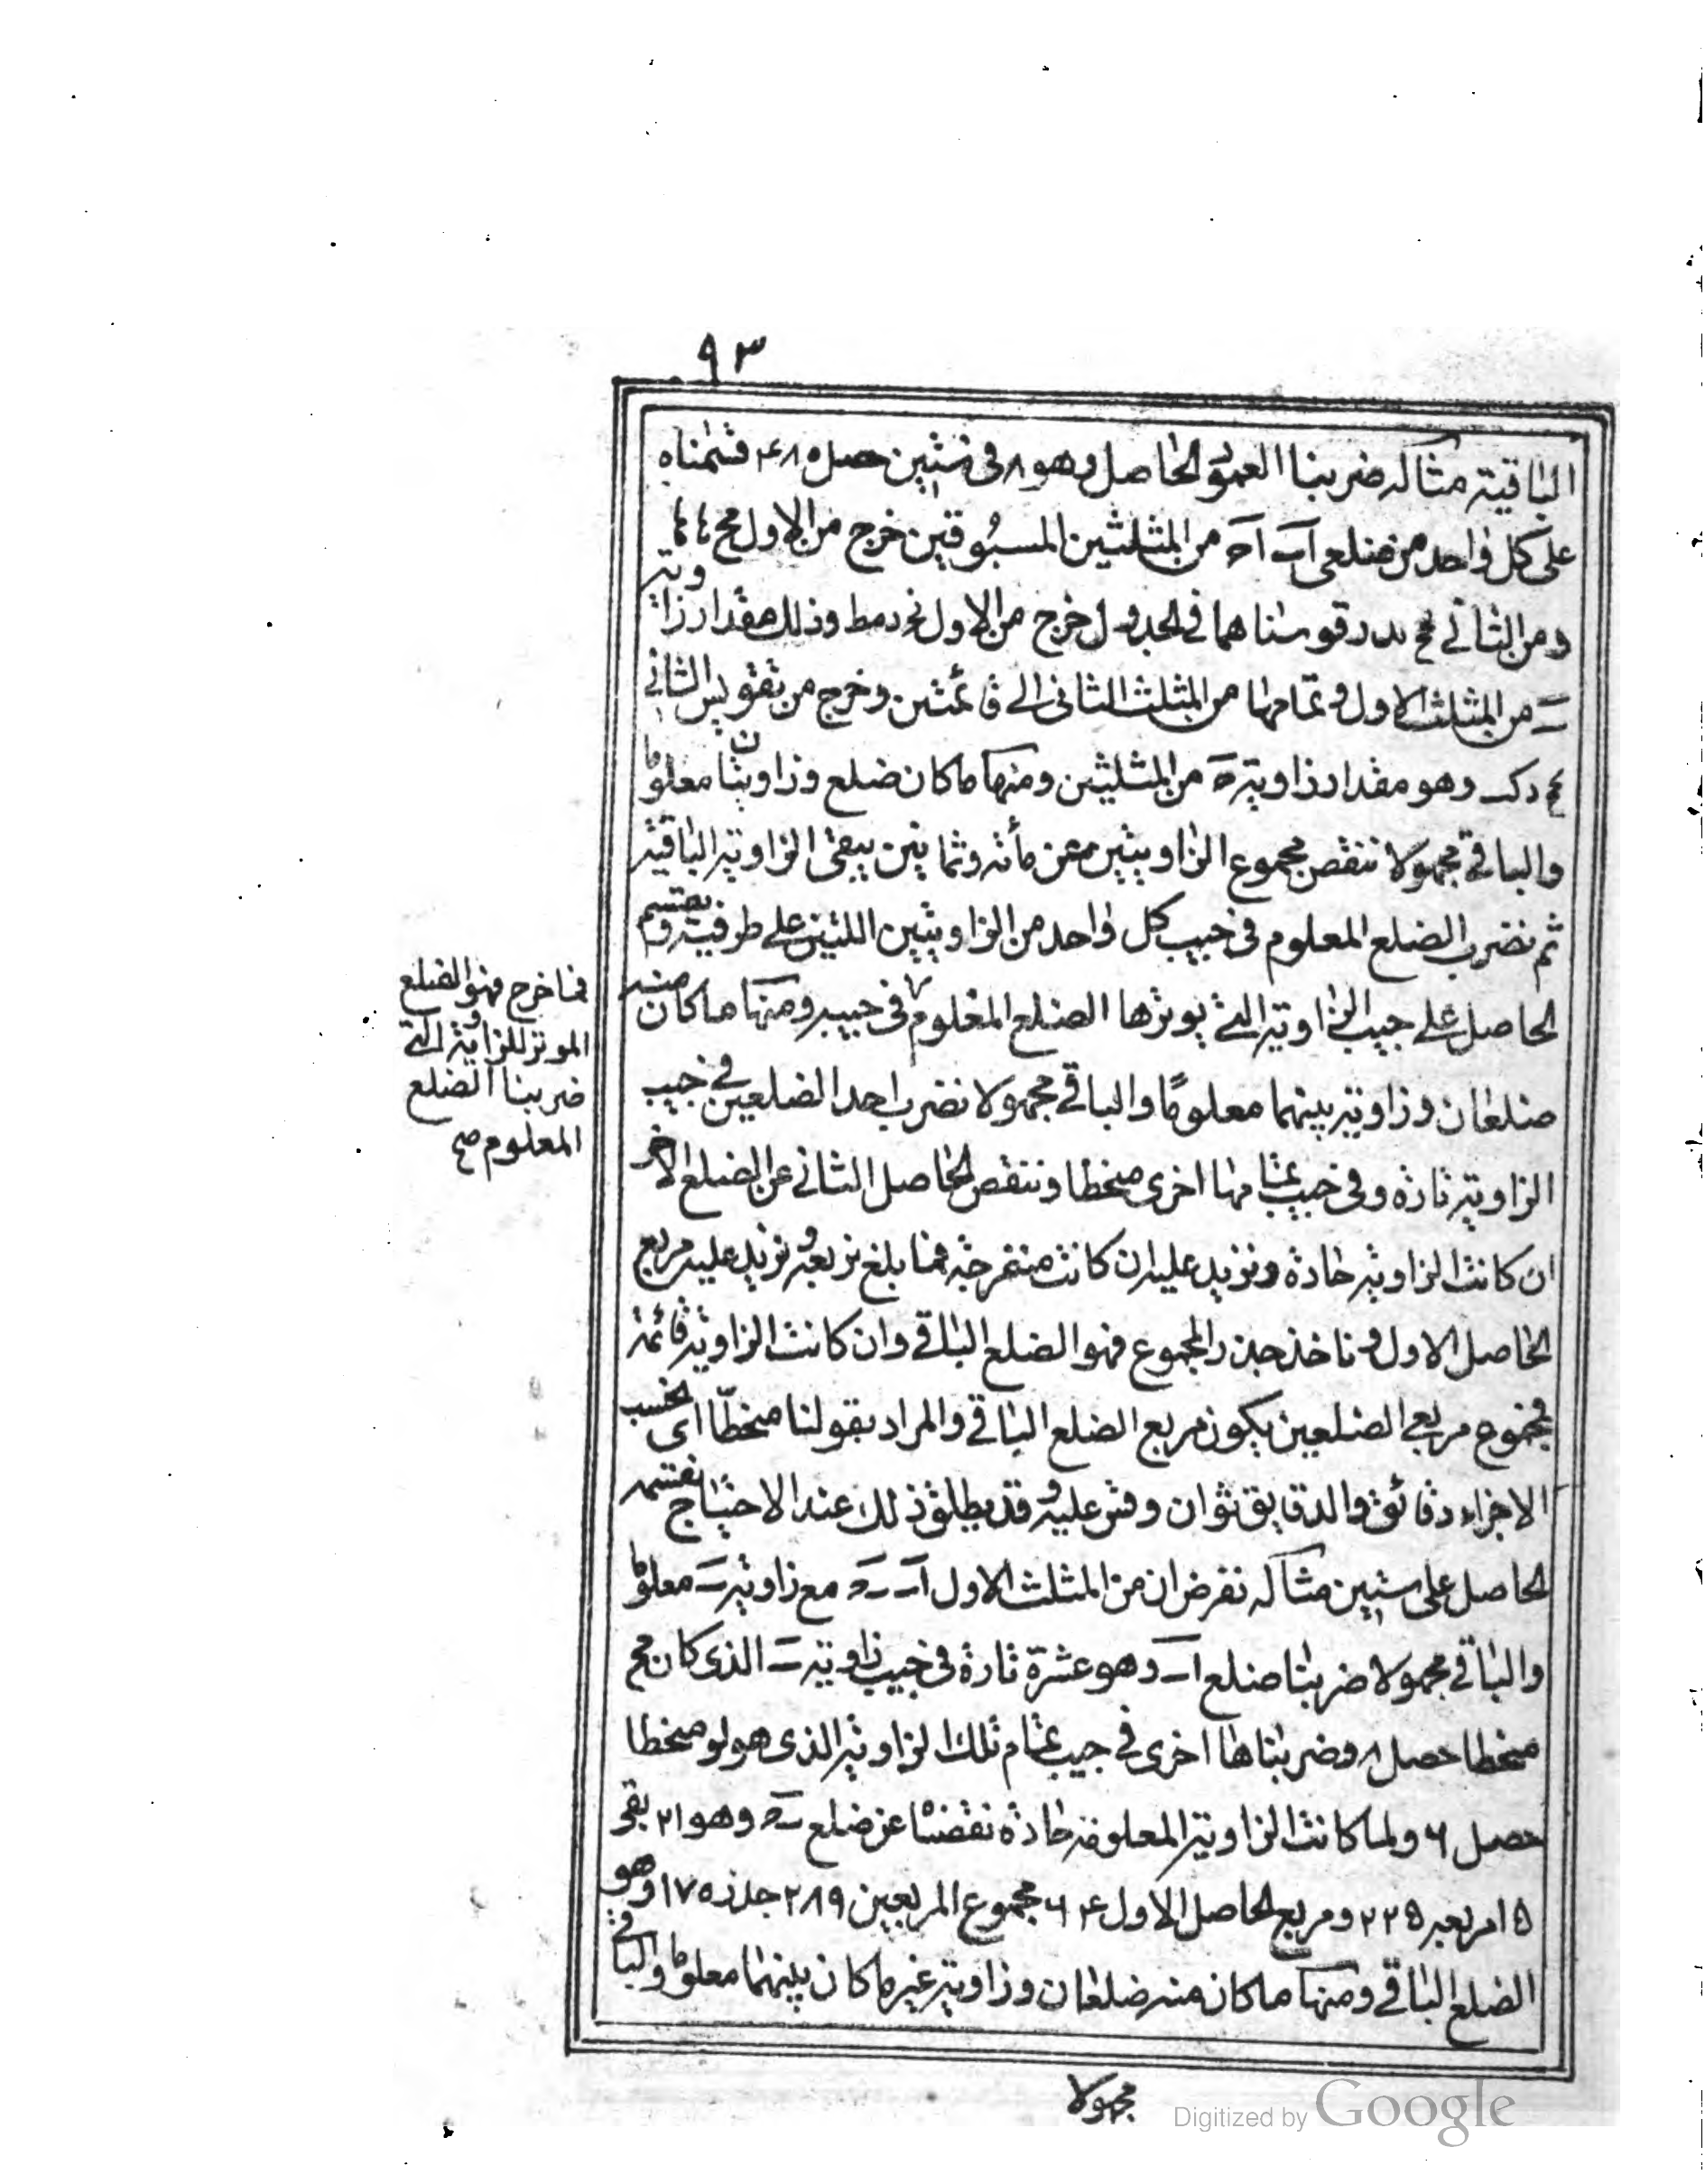 ٩٣
الباقية مثاله ضربنا العمود الحاصل وهو ٨ فى ستين حصل ٤٨٠ قسمناه
على كل واحد من ضلعى اب اح من المثلثين المسبوقين خرج من الاول مح
ومن الثانى قوسناهما فى الجدول خرج من الاول نح د مط وذلك مقدار زاوية
ب من المثلث الاول وتمامها من المثلث الثانى الى قائمتين وخرج من تقويس الثانى
وهو مقدار زاوية ح من المثلثين ومنها ما كان ضلع وزاويتان معلوما
والباقى مجهولا ننقص مجموع الزاويتين من مأة وثمانين يبقى الزاوية الباقية
ثم نضرب الضلع المعلوم فى جيب كل واحد من الزاويتين اللتين على طرفيه ونقسم
الحاصل على جيب الزاوية التى يوترها الضلع المعلوم فى جيبه ومنها ما كان منه
فما خرج فهو الضلع
الموتر للزاوية التى
ضربنا الضلع
المعلوم صح
ضلعان وزاوية بينهما معلوما والباقى مجهولا نضرب احد الضلعين فى جيب
الزاوية تارة وفى جيب تمامها اخرى منحطا وننقص الحاصل الثانى عن الضلع الاخر
ان كانت الزاوية حادة ونزيد عليه ان كانت منفرجة فما بلغ نربعه ونزيد عليه مربع
الحاصل الاول وناخذ جذر المجموع فهو الضلع الباقى وان كانت الزاوية قائمة
فمجموع مربعى الضلعين يكون مربع الضلع الباقى والمراد بقولنا منحطّا اى نحسب
الاجزاء دقائق والدقايق ثوان وقس عليه وقد يطلق ذلك عند الاحتياج نقسمه
الحاصل على ستين مثاله نفرض ان من المثلث الاول اب ب ح مع زاوية ب معلوما
والباقى مجهولا ضربنا ضلع اب وهو عشرة تارة فى جيب زاوية ب الذى كان مح
منحطا حصل ٨ وضربناها اخرى فى جيب تمام تلك الزاوية الذى هو لو منحطا
حصل ٦ ولما كانت الزاوية المعلومة حادة نقصنا عن ضلع ب ح وهو ٢١ بقى
١٥ مربعه ٢٢٥ ومربع الحاصل الاول ٦٤ مجموع المربعين ٢٨٩ جذره ١٧ وهو
الضلع الباقى ومنها ما كان منه ضلعان وزاوية غير ما كان بينهما معلوما والباقى
مجهولا
Digitized by Google